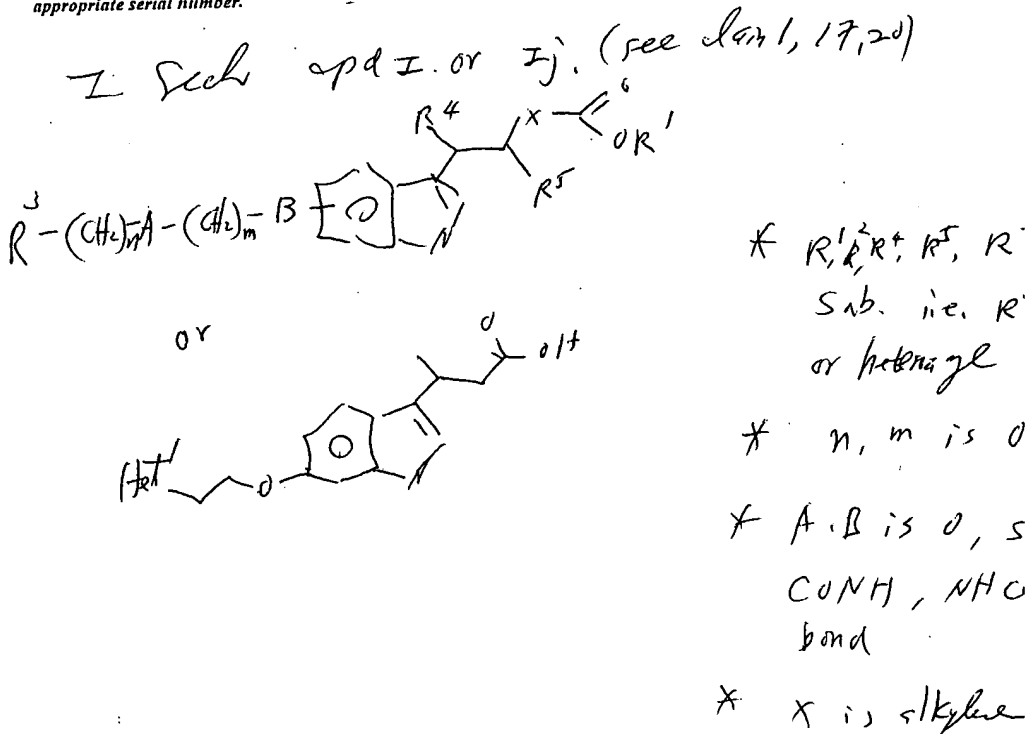 appropriate serial number.
I Sech cpd I. or Ij. (see claim 1, 17, 20)
R4
X
O
OR1
R5
R3-(CH2)n-A-(CH2)m-B
N
* R1, R2, R4, R5, R
Sub. i.e. R
or
or
O
OH
Het
O
N
* n, m is 0
* A.B is O, S
CONH, NHC
bond
* X is alkylene